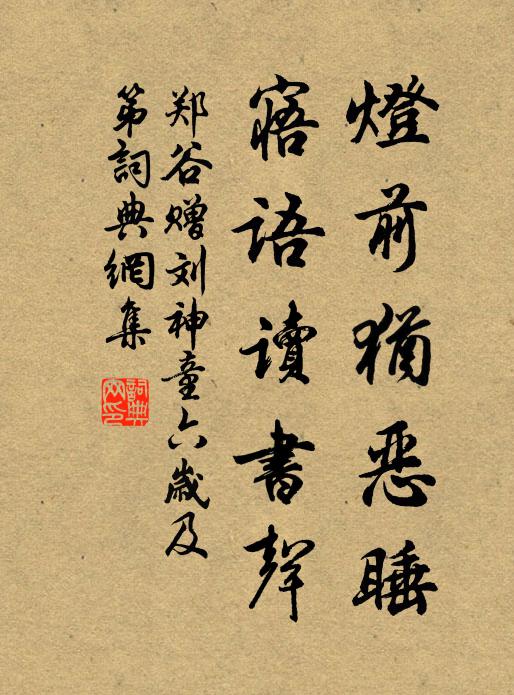 燈前猶惡睡
寤語讀書聲
郑谷赠刘神童六歲及
第詞典網集
詞典網印